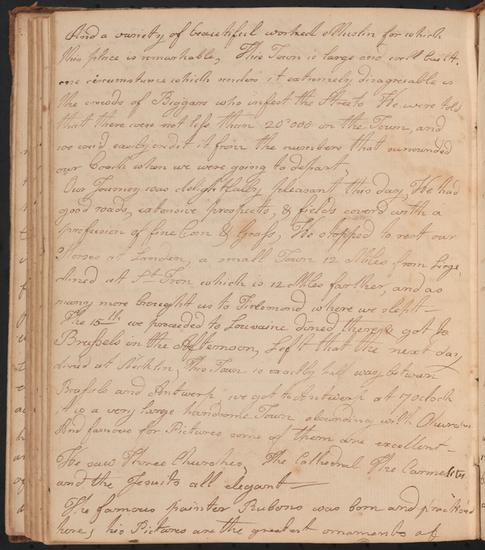 And a variety of beautiful worked Muslin for which
this place is remarkable, This Town is large and well built,
one circumstance which renders it extremely disagreable is
the crouds of Beggars who infest the Streets We were told
that there were not less than 20'000 in the Town, and
we could easily credit it from the numbers that surrounded
our Coach when we were going to depart
Our Journey was delightfully pleasant this day, We had
good roads, extensive prospects, & fields coverd with a
profession of fine Corn & Grass, We stopped to rest our
Horses at Landen, a small Town 12 Miles from Liege,
dined at St Tron which is 12 Miles farther, and as
many more brought us to Tirlemond where we slept—
The 15th we proceeded to Louvaine dined there & got to
Brussels in the Afternoon, Left that the next day
dined at Mechlin, This Town is exactly half way between
Brussels and Antwerp, we got to Antwerp at 7 Oclock
it is a very large handsome Town abounding with Churches
And famous for Pictures some of them are excellent—
We saw Three Churches, The Cathedral The Carmelites
and the Jesuits all elegant—
The famous painter Rubens was born and practised
here, his Pictures are the greatest ornaments of